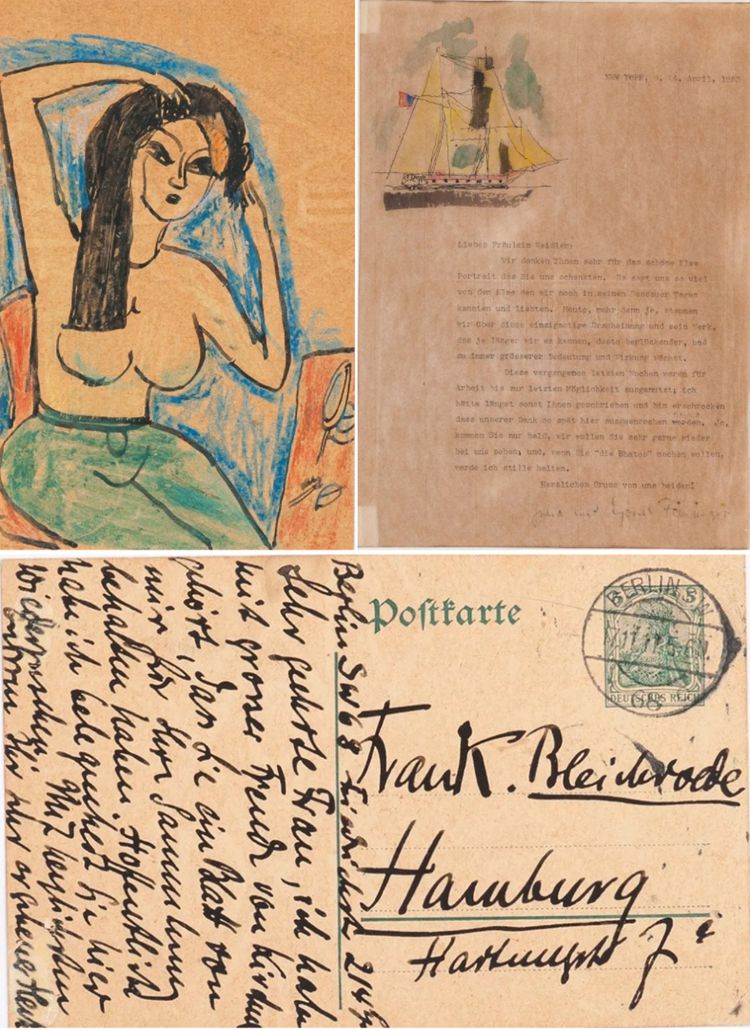 NEW YORK, April,
Liebes Fräulein
Wir danken Ihnen sehr für das schöne Klee
Portrait das Sie uns schenkten. Es sagt uns so viel
von dem Klee den wir noch in seinem Dessauer
kannten und liebten. Heute, mehr denn je, staunen
wir über diese einzigartige Erscheinung und sein Werk,
das je länger wir es kennen, desto beglückender, und
zu immer grösserer Bedeutung und Wirkung wächst.
Diese vergangenen letzten Wochen waren für
Arbeit bis zur letzten Möglichkeit ausgenützt; ich
hätte längst sonst Ihnen geschrieben und bin erschrocken
dass unserer Dank so spät hier ausgesprochen Ja,
kommen Sie nur bald, wir wollen Sie sehr gerne wieder
bei uns sehen; und, wenn Sie "die machen wollen,
werde ich stille halten.
Herzlichen Gruss von uns beiden!
Julia und Lyonel Feininger
Berlin SW 68
Sehr geehrte Frau, ich habe
mit grosser Freude von Kirchner
gehört, dass Sie ein Blatt von
mir für Ihre Sammlung
behalten haben. Hoffentlich
habe ich Gelegenheit Sie hier
Mit herzlichem
Ihr sehr ergebener
Postkarte
BERLIN S.W.
68
DEUTSCHES REICH
Frau K. Bleichrode
Hamburg
Hartungstr 7a